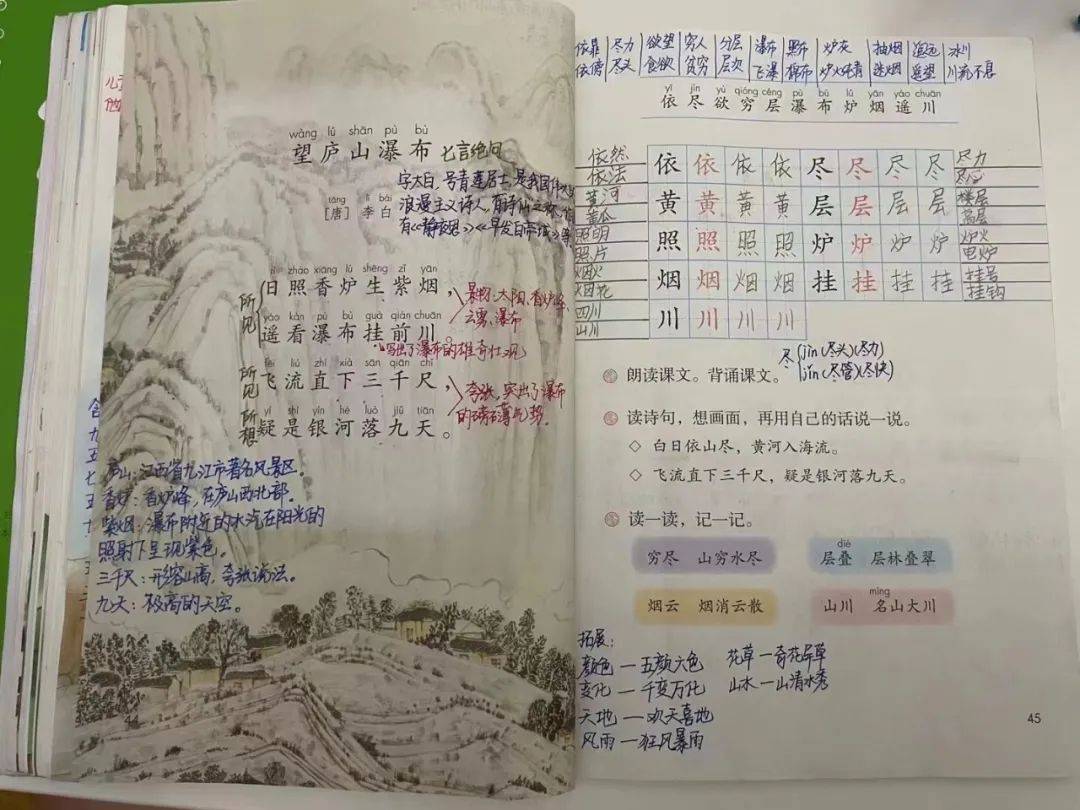 wàng lú shān pù bù
望庐山瀑布 七言绝句
字太白,号青莲居士,是我国伟大
táng lǐ bái
[唐] 李白
浪漫主义诗人,有诗仙之称,作
有《静夜思》《早发白帝城》等
所见
rì zhào xiāng lú shēng zǐ yān
日照香炉生紫烟,
景物:太阳、香炉峰、
云雾、瀑布
yáo kàn pù bù guà qián chuān
遥看瀑布挂前川。
写出了瀑布的雄奇壮观
所见
fēi liú zhí xià sān qiān chǐ
飞流直下三千尺,
夸张,突出了瀑布
的磅礴气势。
所想
yí shì yín hé luò jiǔ tiān
疑是银河落九天。
庐山:江西省九江市著名风景区。
香炉:香炉峰,在庐山西北部。
紫烟:瀑布附近的水汽在阳光的
照射下呈现紫色。
三千尺:形容山高,夸张说法。
九天:极高的天空。
44
依靠 尽力 欲望 穷人 分层 瀑布 黑布 炉灰 抽烟 遥远 冰川
依傍 尽头 食欲 贫穷 层次 飞瀑 棉布 炉火纯青 迷烟 遥望 川流不息
yī jìn yù qióng céng pù bù lú yān yáo chuān
依尽欲穷层瀑布炉烟遥川
依然 依依依依尽尽尽尽 尽力
依法 尽心
黄河 黄黄黄黄层层层层 楼层
黄瓜 高层
照明 照照照照炉炉炉炉 炉火
照片 电炉
烟火 烟烟烟烟挂挂挂挂 挂号
烟花 挂钩
四川 川川川川
山川
尽 jìn(尽头)(尽力)
jǐn(尽管)(尽快)
朗读课文。背诵课文。
读诗句,想画面,再用自己的话说一说。
◇ 白日依山尽,黄河入海流。
◇ 飞流直下三千尺,疑是银河落九天。
读一读,记一记。
dié
穷尽 山穷水尽 层叠 层林叠翠
míng
烟云 烟消云散 山川 名山大川
拓展:
颜色—五颜六色 花草—奇花异草
变化—千变万化 山水—山清水秀
天地—欢天喜地
风雨—狂风暴雨
45